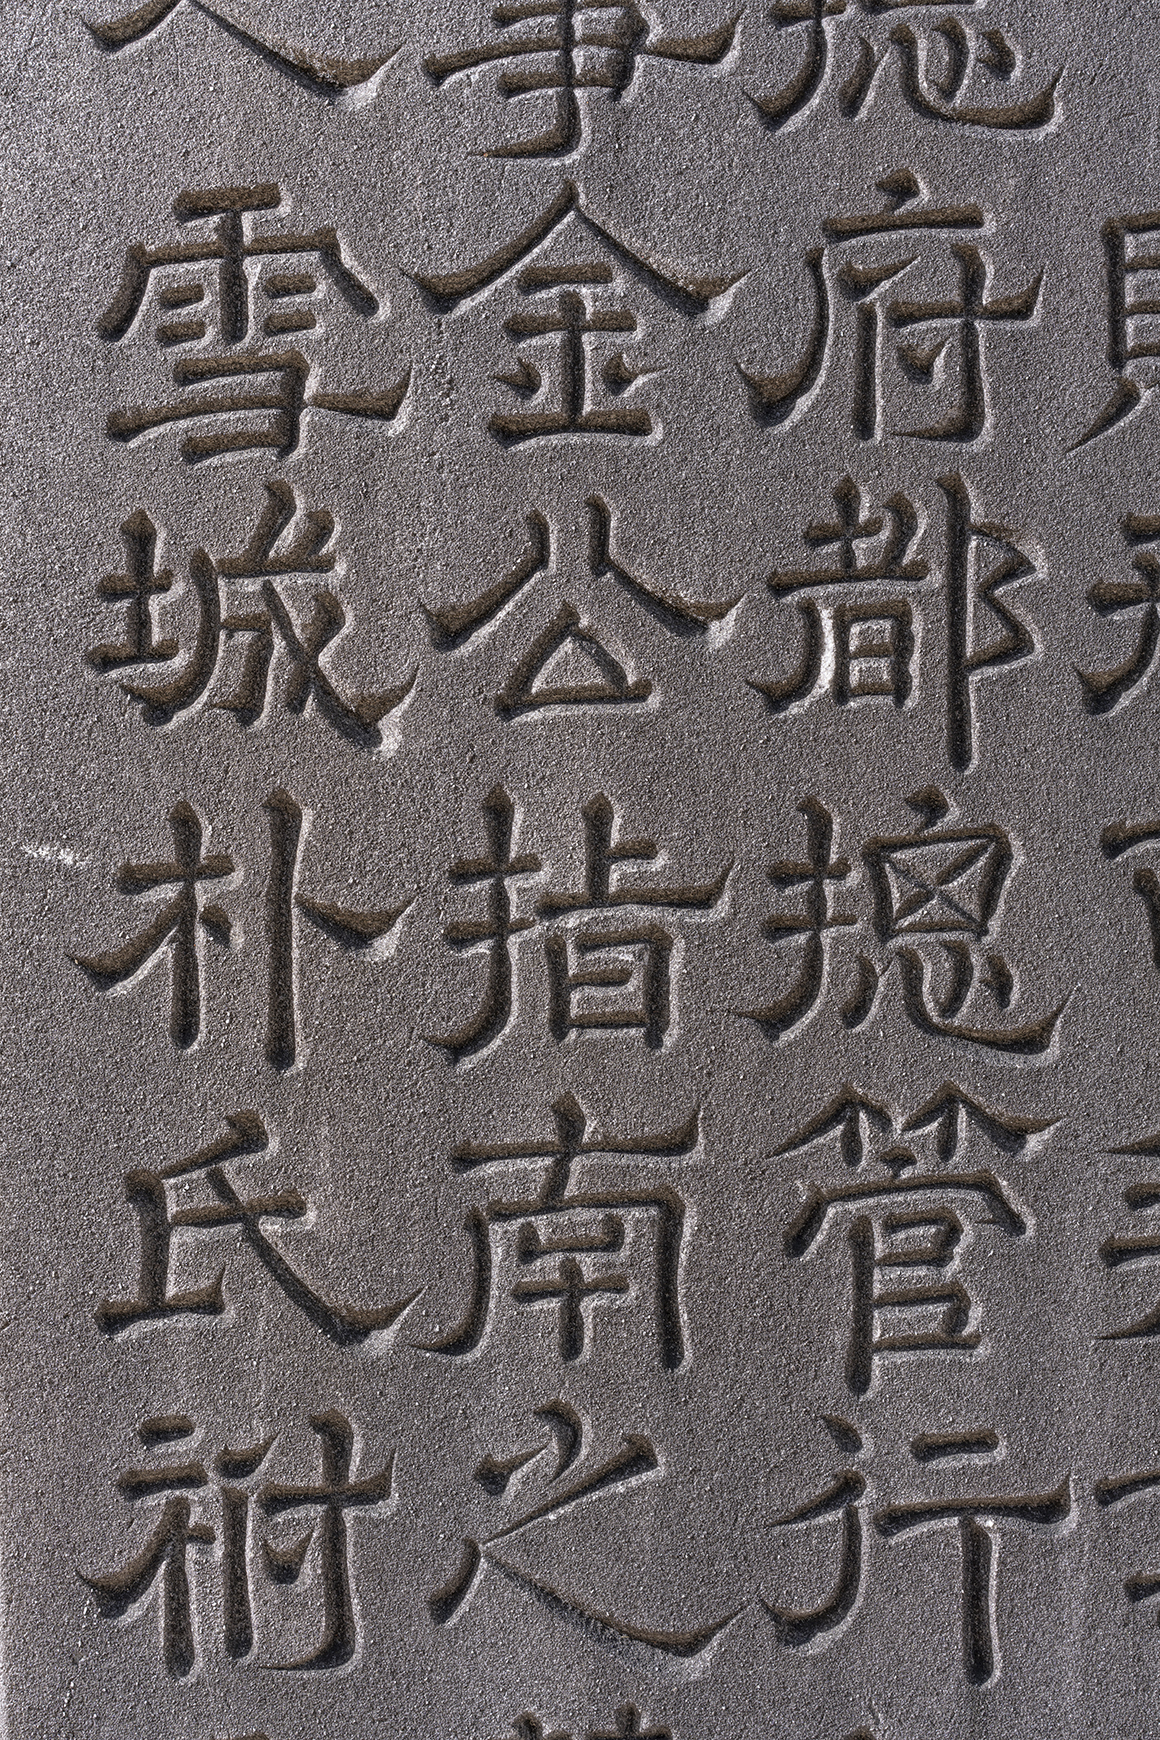 府都摠管行
事金公指南之
雪城朴氏祔